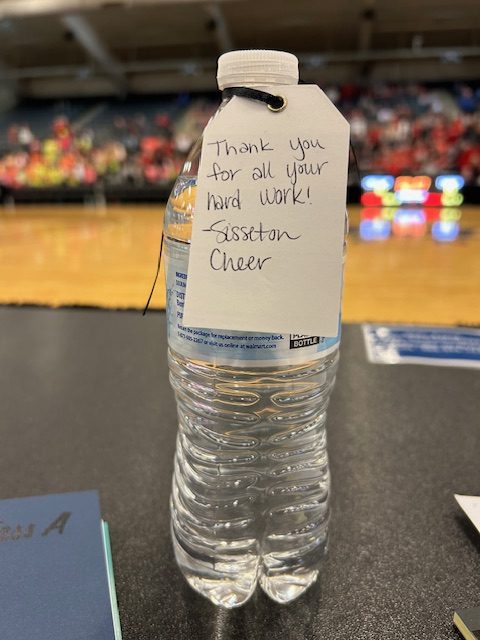 Thank you
for all your
hard work!
-Sisseton
Cheer
Return the package for replacement or money back.
or visit us online at walmart.com
BOTTLE